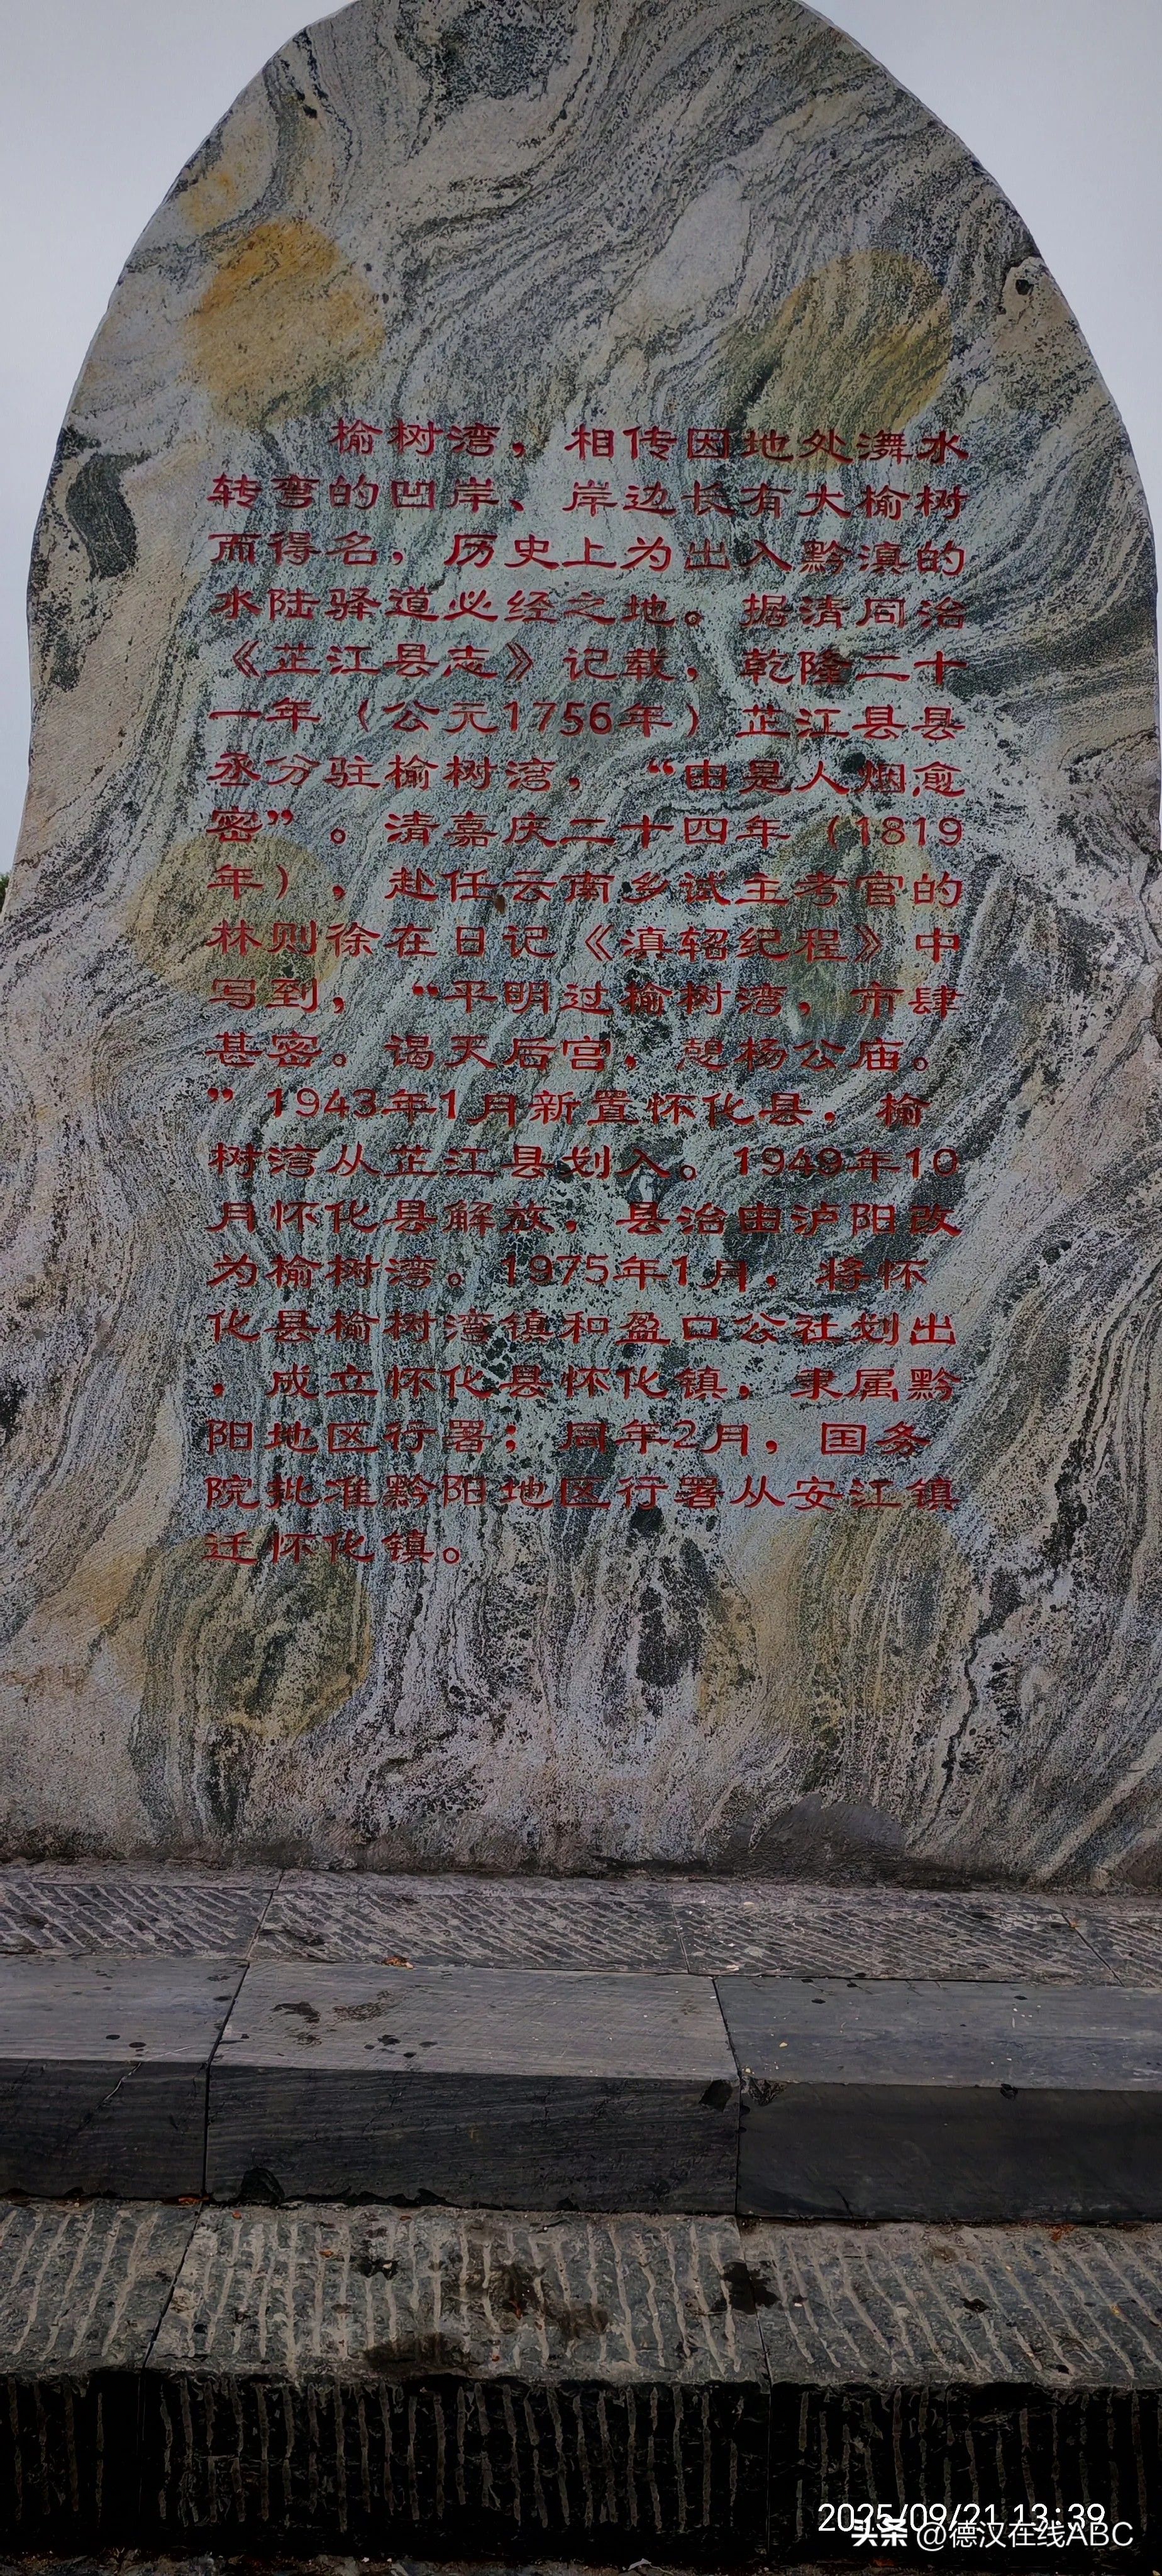 榆树湾，相传因地处㵲水
转弯的凹岸、岸边长有大榆树
而得名，历史上为出入黔滇的
水陆驿道必经之地。据清同治
《芷江县志》记载，乾隆二十
一年（公元1756年）芷江县县
丞分驻榆树湾，“由是人烟愈
密”。清嘉庆二十四年（1819
年），赴任云南乡试主考官的
林则徐在日记《滇轺纪程》中
写到，“平明过榆树湾，市肆
甚密。谒天后宫，憩杨公庙。
”1943年1月新置怀化县，榆
树湾从芷江县划入。1949年10
月怀化县解放，县治由泸阳改
为榆树湾。1975年1月，将怀
化县榆树湾镇和盈口公社划出
，成立怀化县怀化镇，隶属黔
阳地区行署；同年2月，国务
院批准黔阳地区行署从安江镇
迁怀化镇。
2025/09/21 13:39
头条 @德汉在线ABC